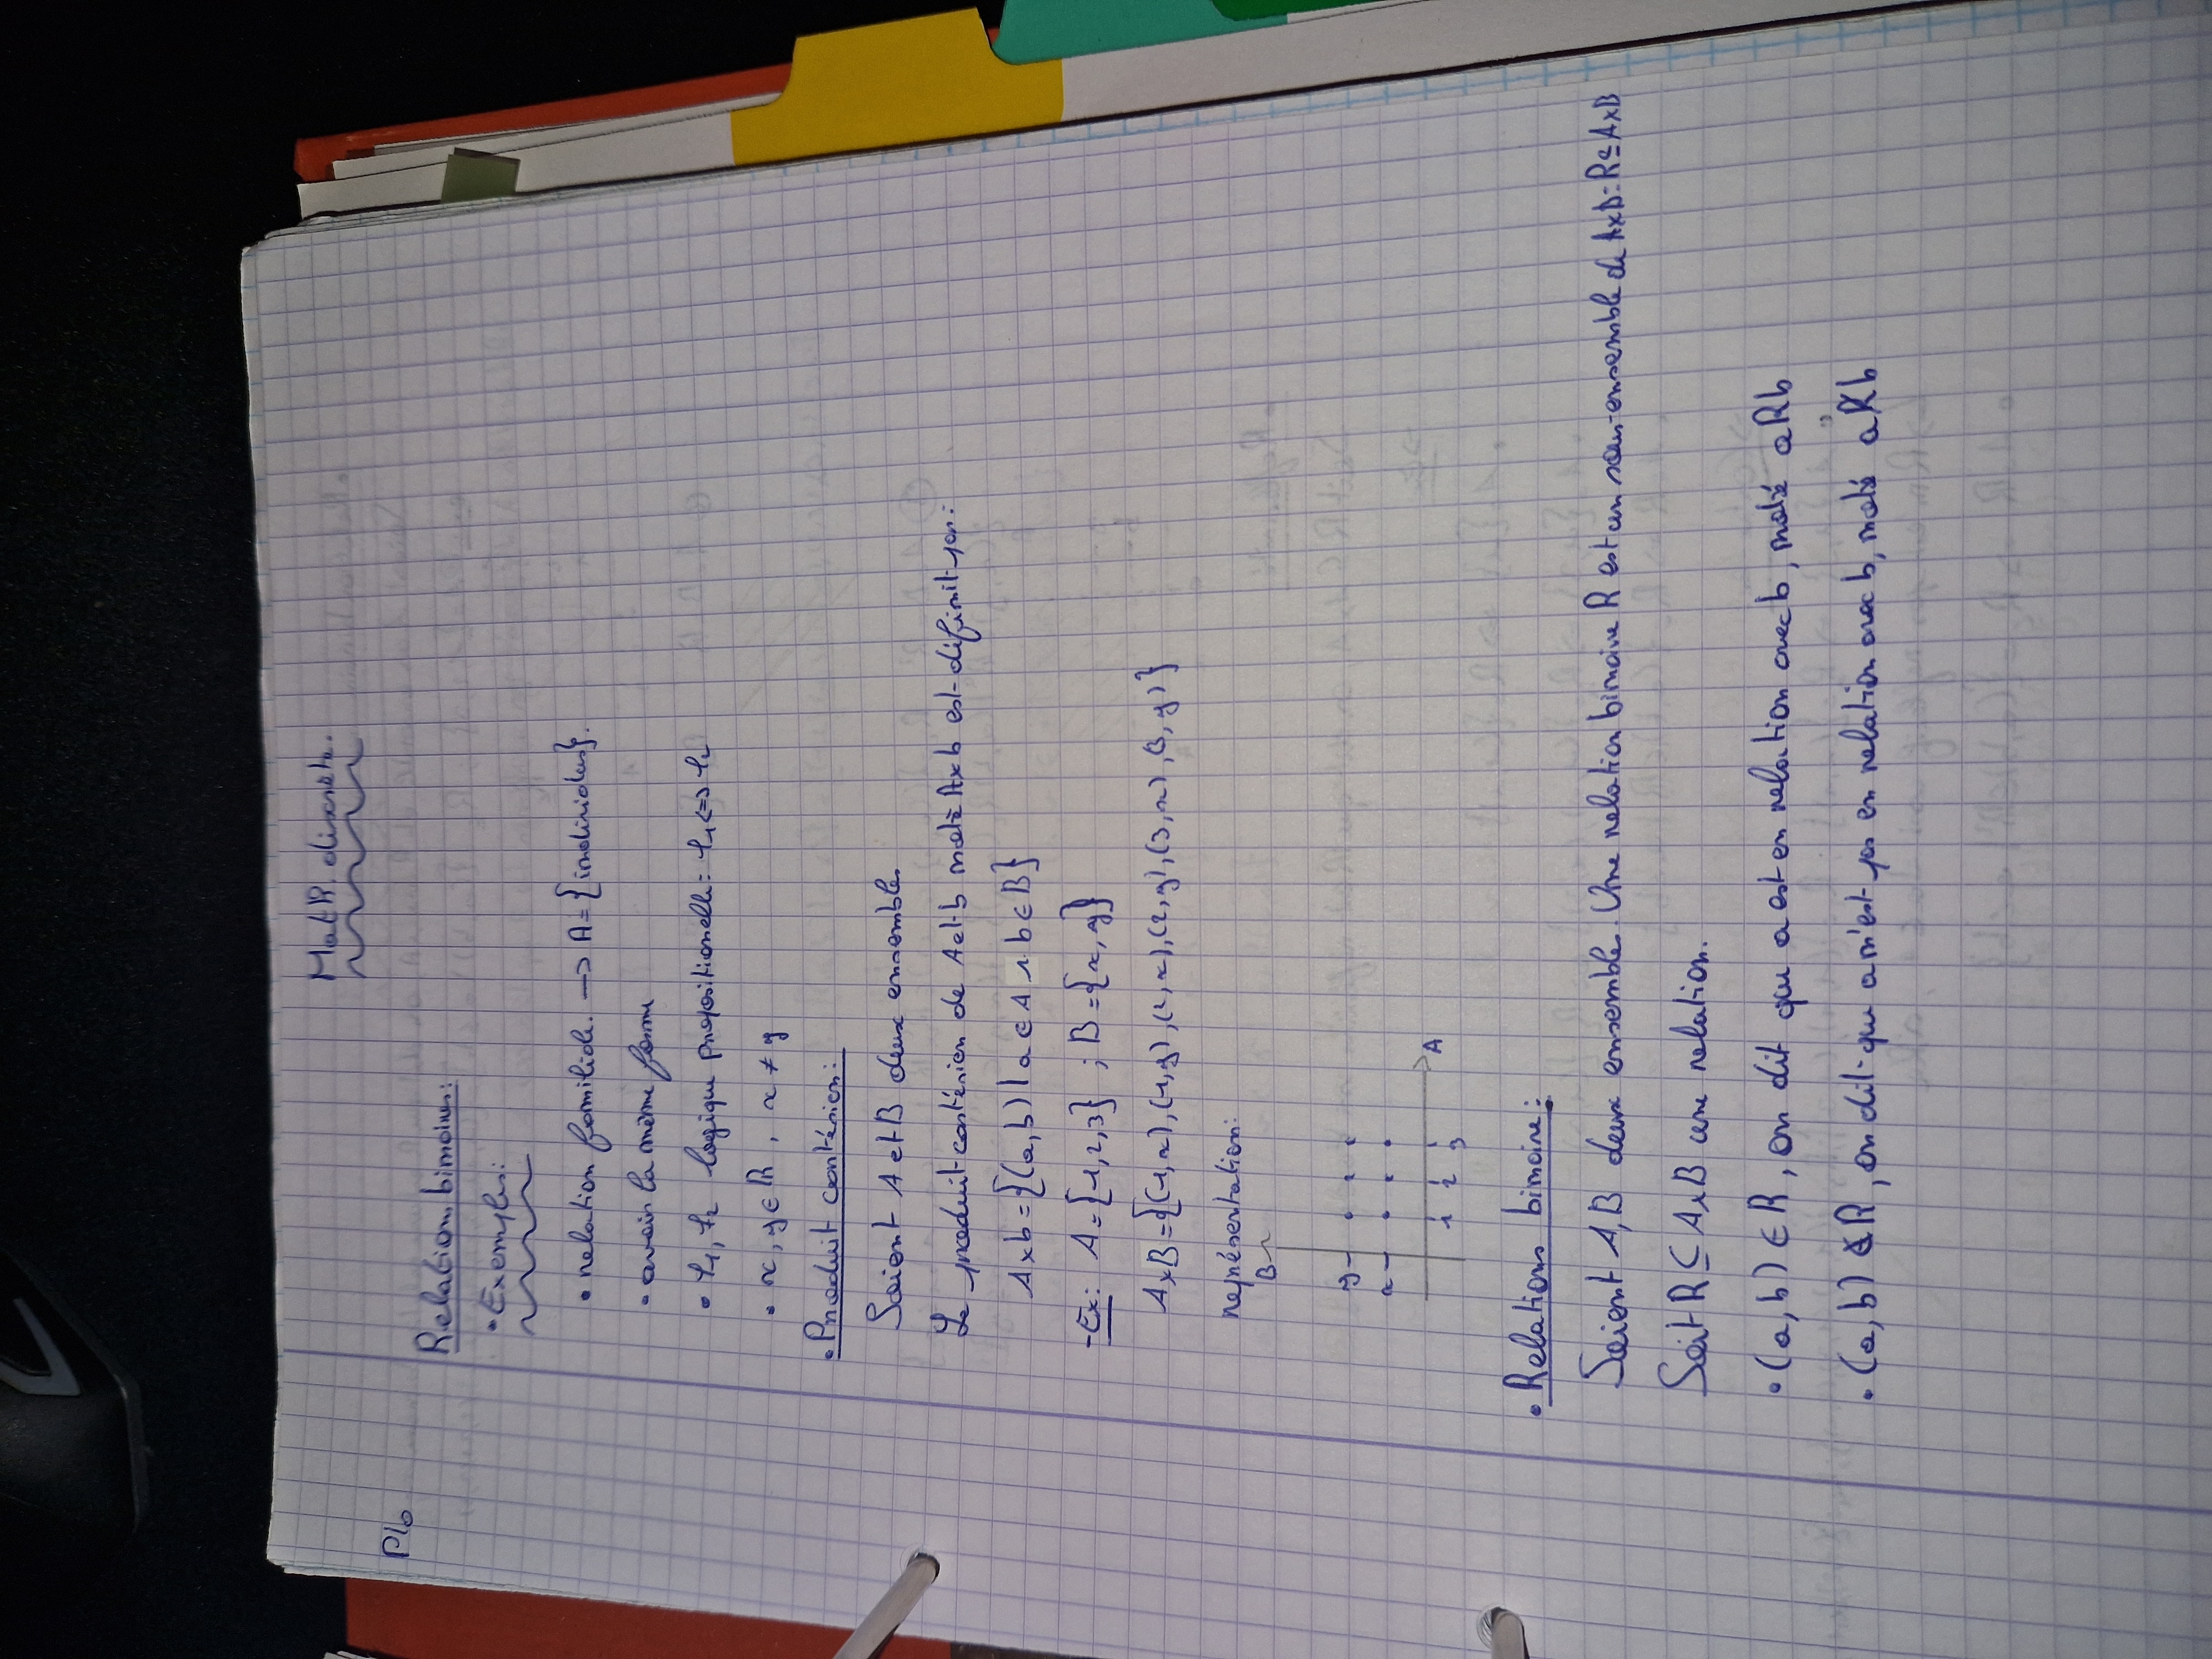 Math discrète.
P10
Relations binaires:
• Exemples:
• relation familiale. → A = {individus}.
• avoir la même forme
• f₁, f₂ logique propositionelle: f₁ <=> f₂
• x, y ∈ R, x ≠ y
• Produit cartésien:
Soient A et B deux ensembles
Le produit cartésien de A et b noté A×b est définit par:
A×b = {(a,b) | a ∈ A ∧ b ∈ B}
- Ex: A = {1,2,3} ; B = {x, y}
A×B = {(1,x), (1,y), (2,x), (2,y), (3,x), (3,y)}
représentation:
B
y
x
A
1 2 3
• Relations binaire:
Soient A, B deux ensembles. Une relation binaire R est un sous-ensemble de A×B: R ⊆ A×B
Soit R ⊆ A×B une relation.
• (a,b) ∈ R, on dit que a est en relation avec b, noté aRb
• (a,b) ∉ R, on dit que a n'est pas en relation avec b, noté aR̸b